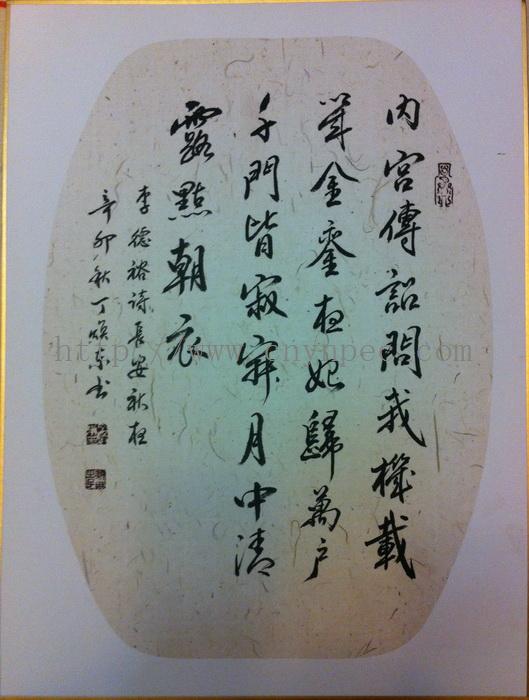 內宮傳詔問戎機載
筆金鑾夜始歸萬戶
千門皆寂寂月中清
露點朝衣
李德裕詩長安秋夜
辛卯秋丁煥东书